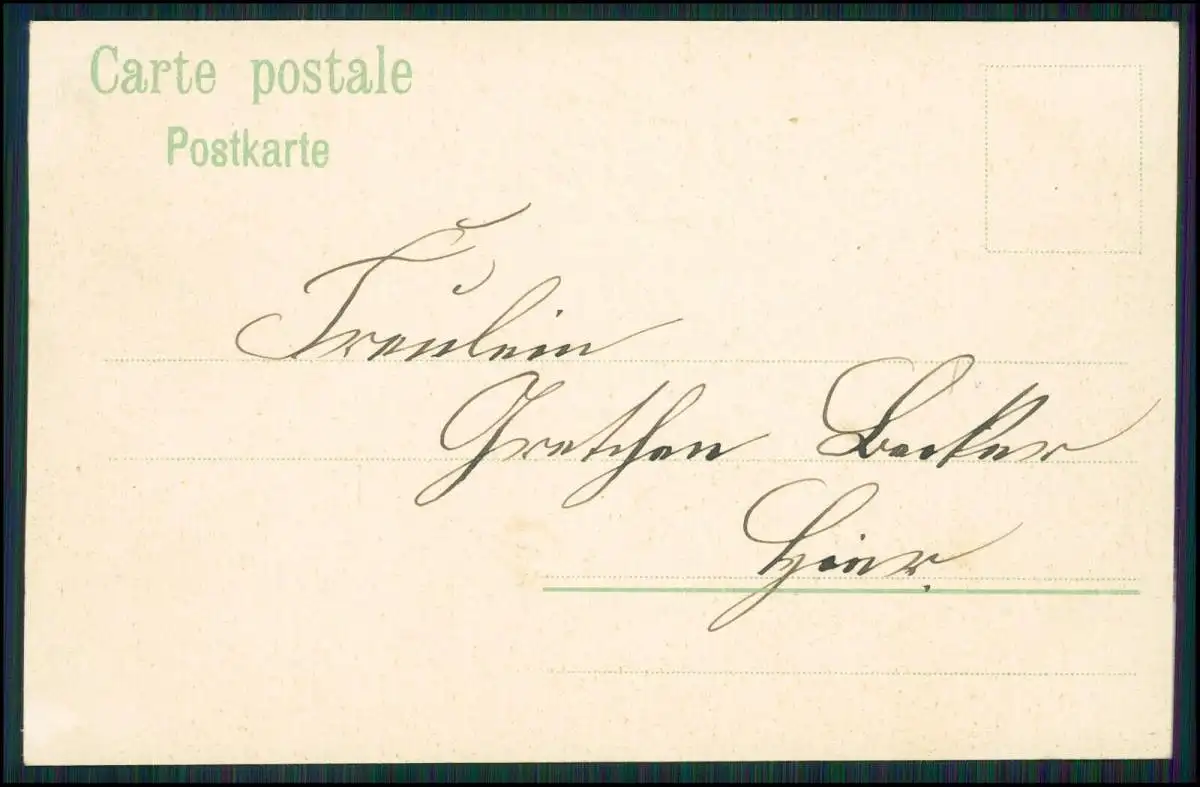 Carte postale
Postkarte
Fräulein
Gretchen Becker
Hier.